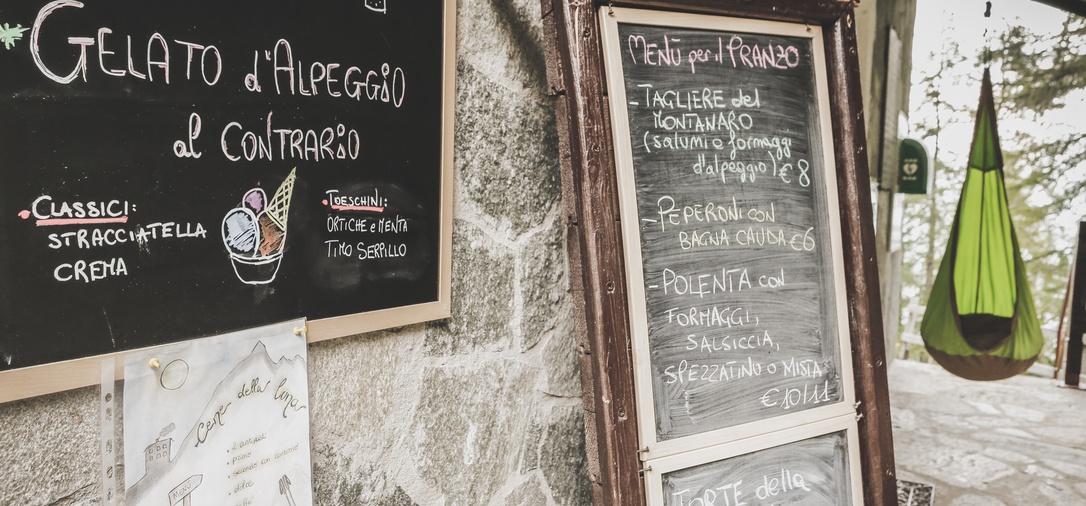 GELATO d'ALPEGGIO
al CONTRARIO
CLASSICI:
STRACCIATELLA
CREMA
TOESCHINI:
ORTICHE e MENTA
TIMO SERPILLO
Cene della luna
MENÙ per il PRANZO
- TAGLIERE del
MONTANARO
(salumi e formaggi
d'alpeggio) € 8
- PEPERONI con
BAGNA CAUDA €6
- POLENTA con
FORMAGGI,
SALSICCIA,
SPEZZATINO o MISTA
€10/11
TORTE della